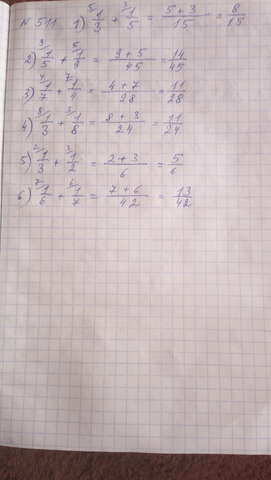 N 511 1) ⁵⁾1/3 + ³⁾1/5 = (5+3)/15 = 8/15
2) ⁹⁾1/5 + ⁵⁾1/9 = (9+5)/45 = 14/45
3) ⁴⁾1/7 + ⁷⁾1/4 = (4+7)/28 = 11/28
4) ⁸⁾1/3 + ³⁾1/8 = (8+3)/24 = 11/24
5) ²⁾1/3 + ³⁾1/2 = (2+3)/6 = 5/6
6) ⁷⁾1/6 + ⁶⁾1/7 = (7+6)/42 = 13/42